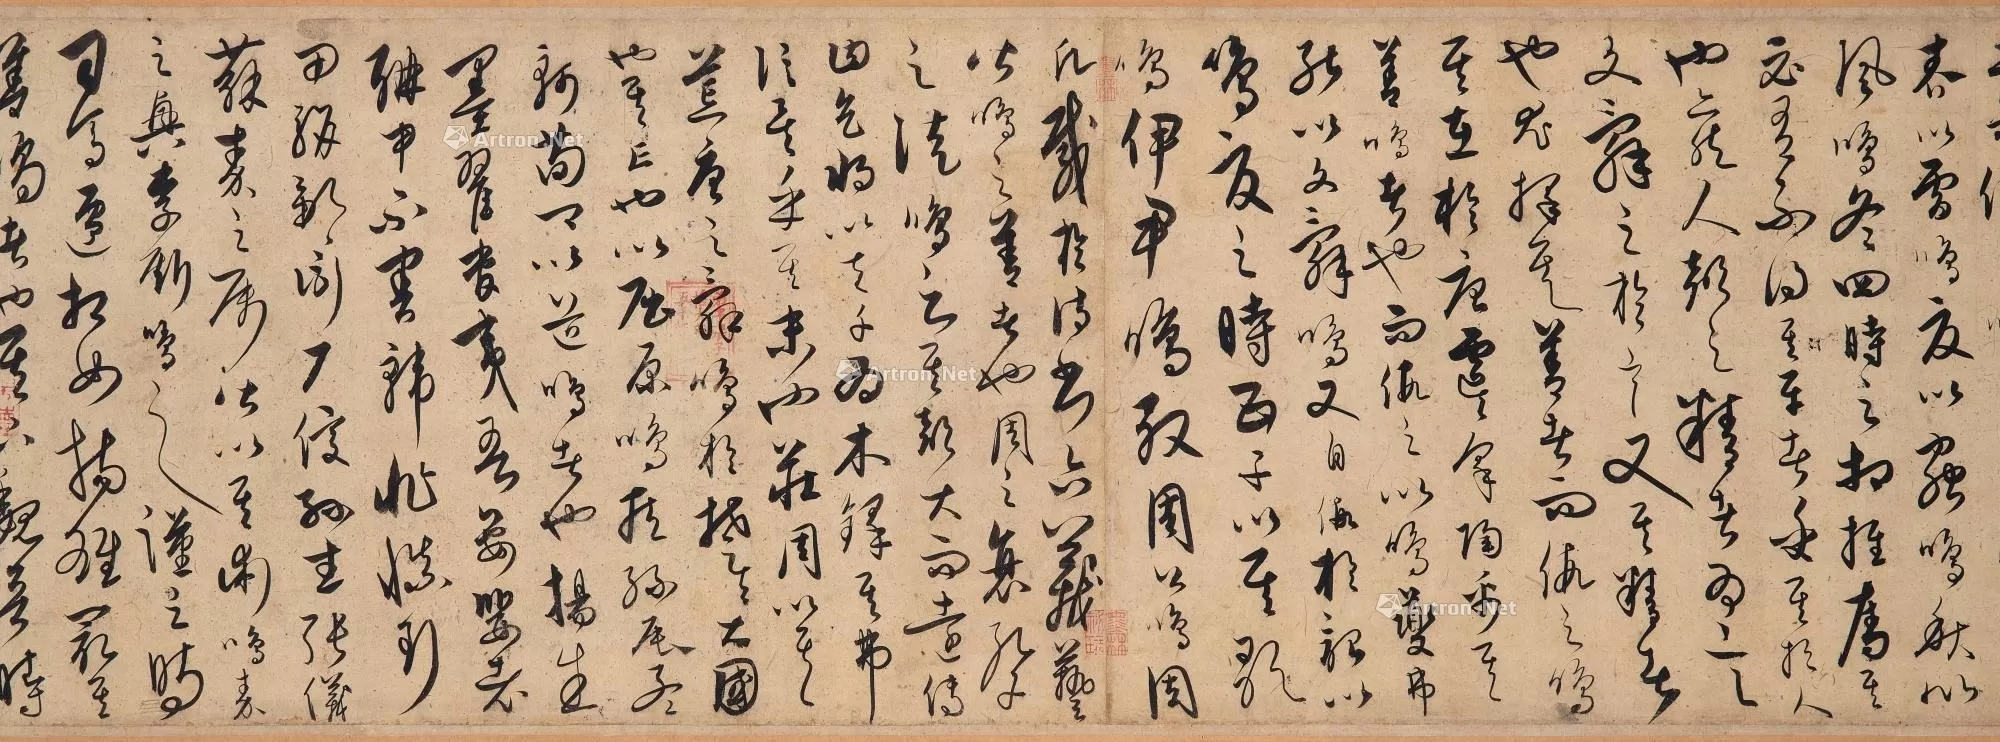 春以雷鳴夏以蟲鳴秋以
風鳴冬四時之相推奪其
必有不得其平者乎其於人
也亦然人聲之精者為言
文辭之於言又其精者
也尤擇其善者而假之鳴
其在於唐虞皋陶禹其
善鳴者也而假之以鳴夔弗
能以文辭鳴又自假於韶以
鳴夏之時五子以其歌
鳴伊尹鳴殷周公鳴周
凡載於詩書六藝
皆鳴之善者也周之衰孔子
之徒鳴之其聲大而遠傳
曰天將以夫子為木鐸其弗
信矣乎其末也莊周以其
荒唐之辭鳴於楚楚大國
也其亡也以屈原鳴臧孫辰孟
軻荀卿以道鳴者也楊朱
墨翟管夷吾晏嬰老
聃申不害韓非慎到
田駢鄒衍尸佼孫武張儀
蘇秦之屬皆以其術鳴秦
之興李斯鳴之漢之時
司馬遷相如揚雄最其
善鳴者也其下魏晉時
Artron.Net
Artron.Net
Artron.Net